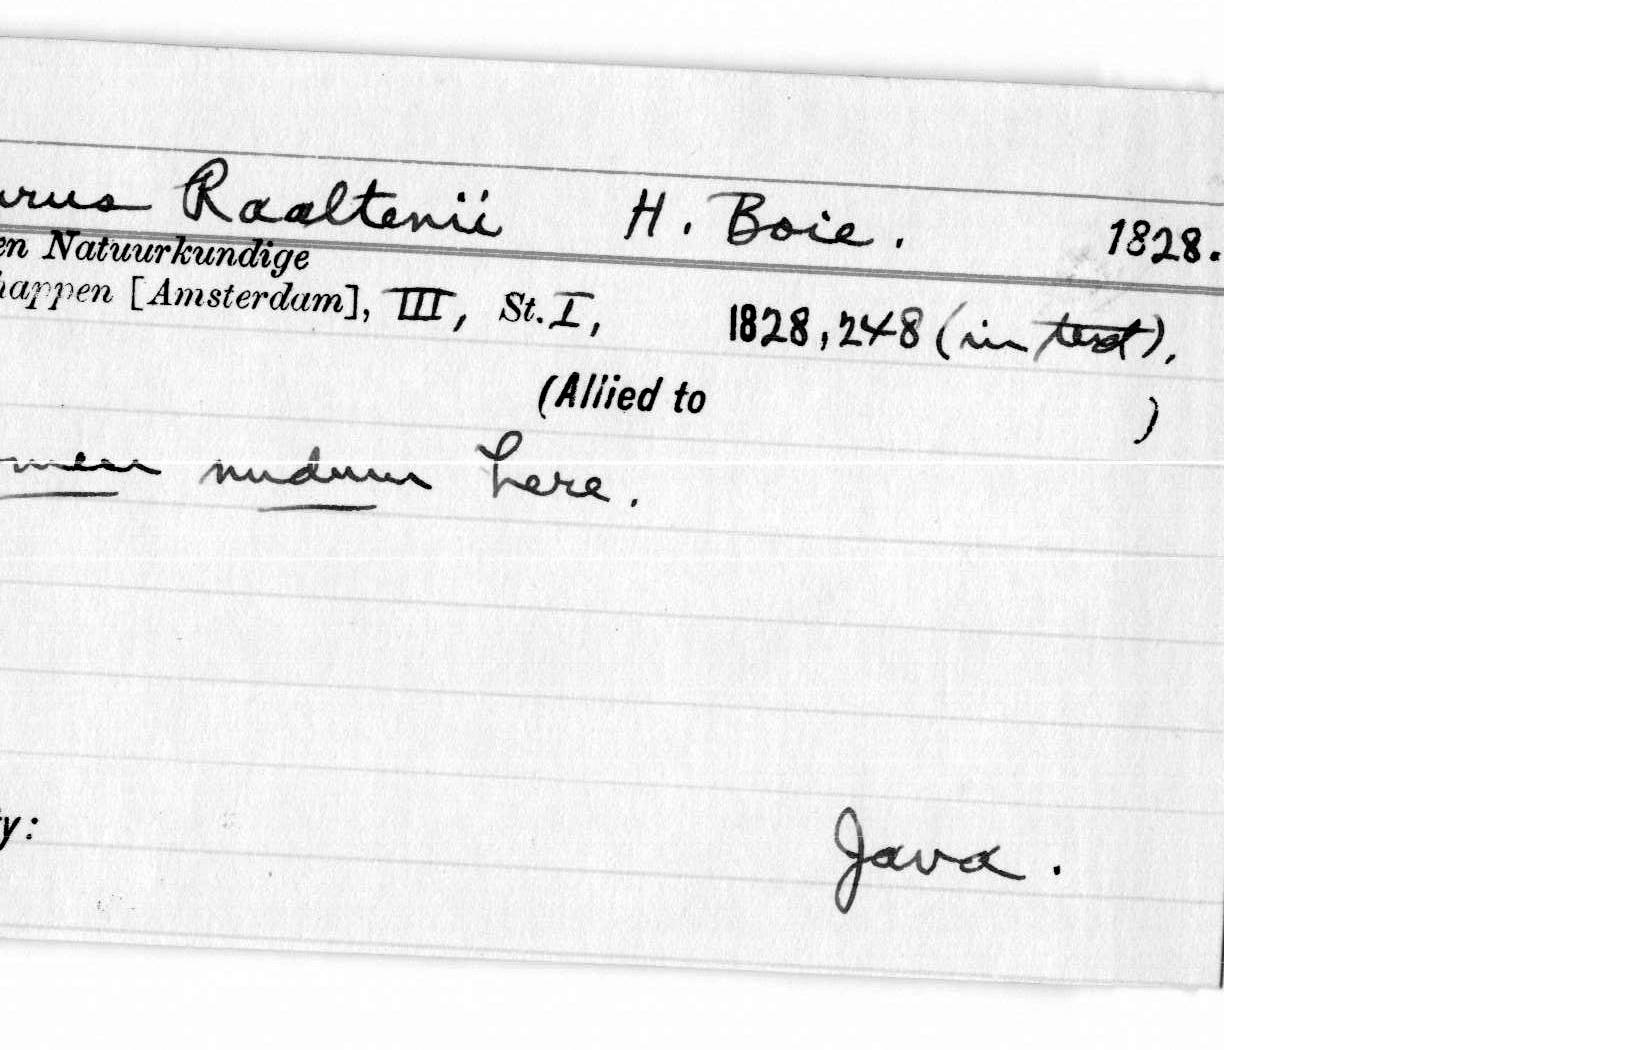 urus Raaltenii H. Boie. 1828.
en Natuurkundige
happen [Amsterdam], III, St. I, 1828, 248 (in text).
(Allied to )
omen nudum here.
ty: Java.